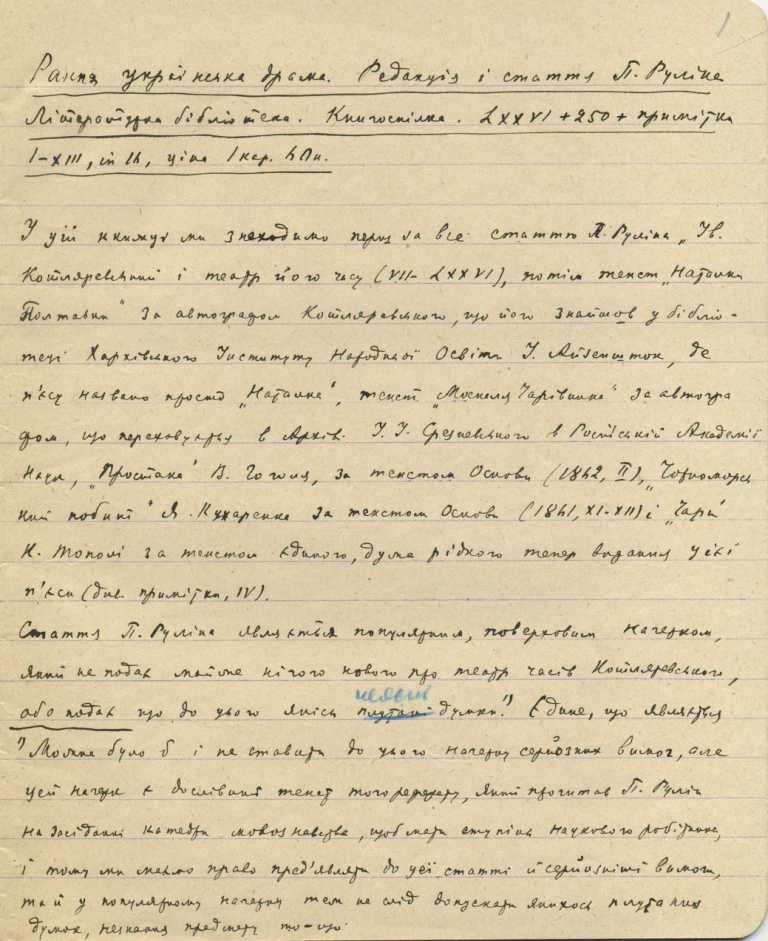 1
Рання українська драма. Редакція і стаття П. Руліна
Літературна бібліотека. Книгоспілка. LXXVI + 250 + примітки
I–XIII, in 16, ціна 1 кар. коп.
У цій книжці ми знеходимо перш за все статтю П. Руліна „Ів.
Котляревський і театр його часу (VII–LXXVI), потім текст „Наталки
Полтавки" за автографом Котляревського, що його знайшов у бібліо-
теці Харківського Інституту Народньої Освіти І. Айзеншток, де
п'єсу названо просто „Наталка", текст „Москаля Чарівника" за автогра
фом, що переховується в Архів. І. І. Срезневського в Російській Академії
Наук, „Простака" В. Гоголя, за текстом Основи (1862, II), „Чорноморсь
кий побит" Я. Кухаренка за текстом Основи (1861, XI–XII) і „Чари"
К. Тополі за текстом єдиного, дуже рідкого тепер видання цієї
п'єси (див. примітки, IV).
Стаття П. Руліна являється популярним, поверховим начерком,
який не подає майже нічого нового про театр часів Котляревського,
або подає що до цього якісь неясні думки.¹⁾ Єдине, що являється
¹⁾ Можна було б і не ставити до цього начерку серйозних вимог, але
цей начерк є дослівний текст того реферату, який прочитав П. Рулін
на засіданні катедри мовознавства, щоб мати ступінь наукового робітника,
і тому ми маємо право пред'являти до цієї статті й серйозніші вимоги,
та й у популярному начерку теж не слід допускати якихось плутаних
думок, незнання предмету то-що